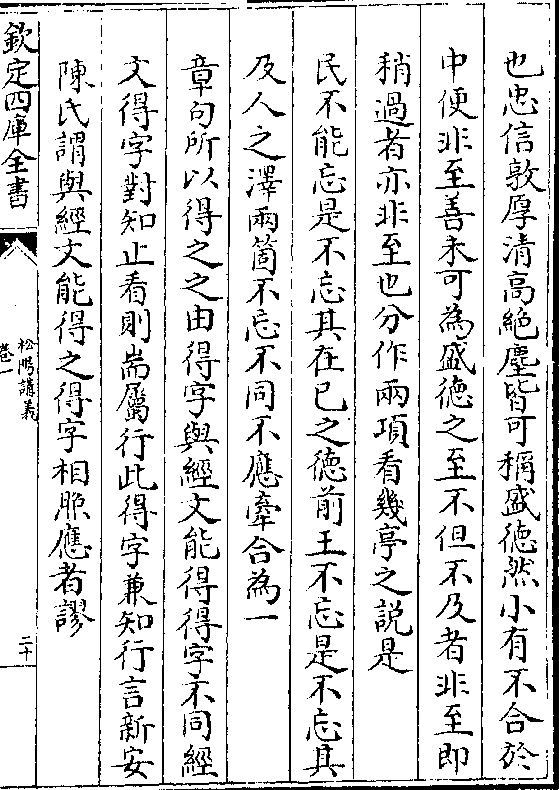 也忠信敦厚清高絶塵皆可稱盛徳然小有不合於
中便非至善未可為盛徳之至不但不及者非至即
稍過者亦非至也分作兩項看幾亭之説是
民不能忘是不忘其在已之徳前王不忘是不忘其
及人之澤兩箇不忘不同不應牽合為一
章句所以得之之由得字與經文能得得字不同經
文得字對知止看則耑屬行此得字兼知行言新安
陳氏謂與經文能得之得字相照應者謬
欽定四庫全書
松陽講義
卷一
二十